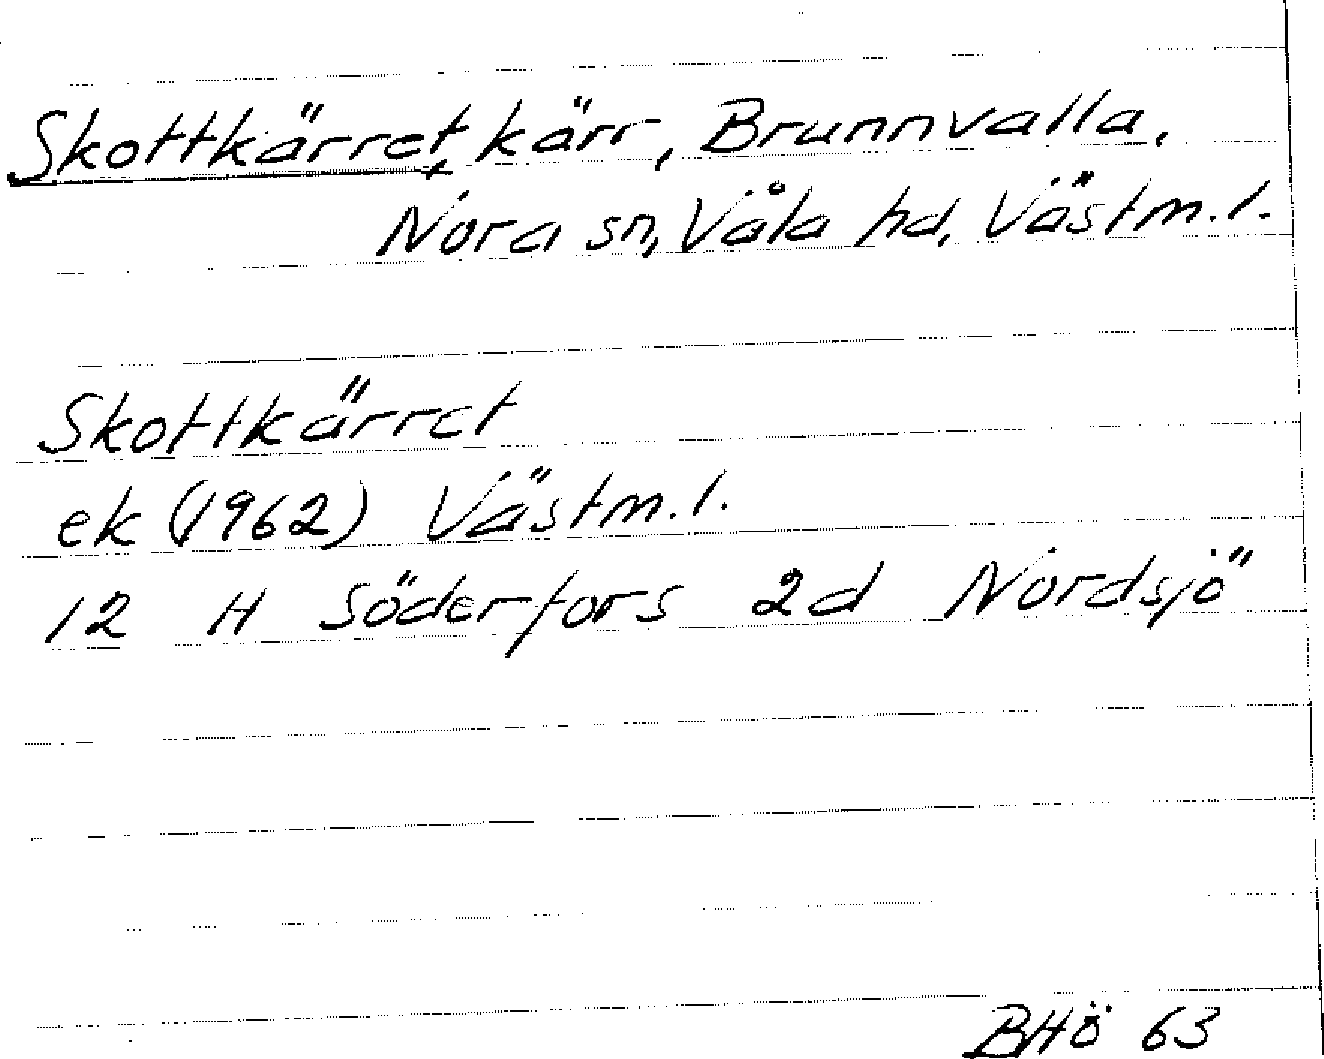 Skottkärret, kärr, Brunnvalla,
Nora sn, Våla hd, Västm.l.
Skottkärret
ek (1962) Västm.l.
12 H Söderfors 2d Nordsjö
BHÖ 63